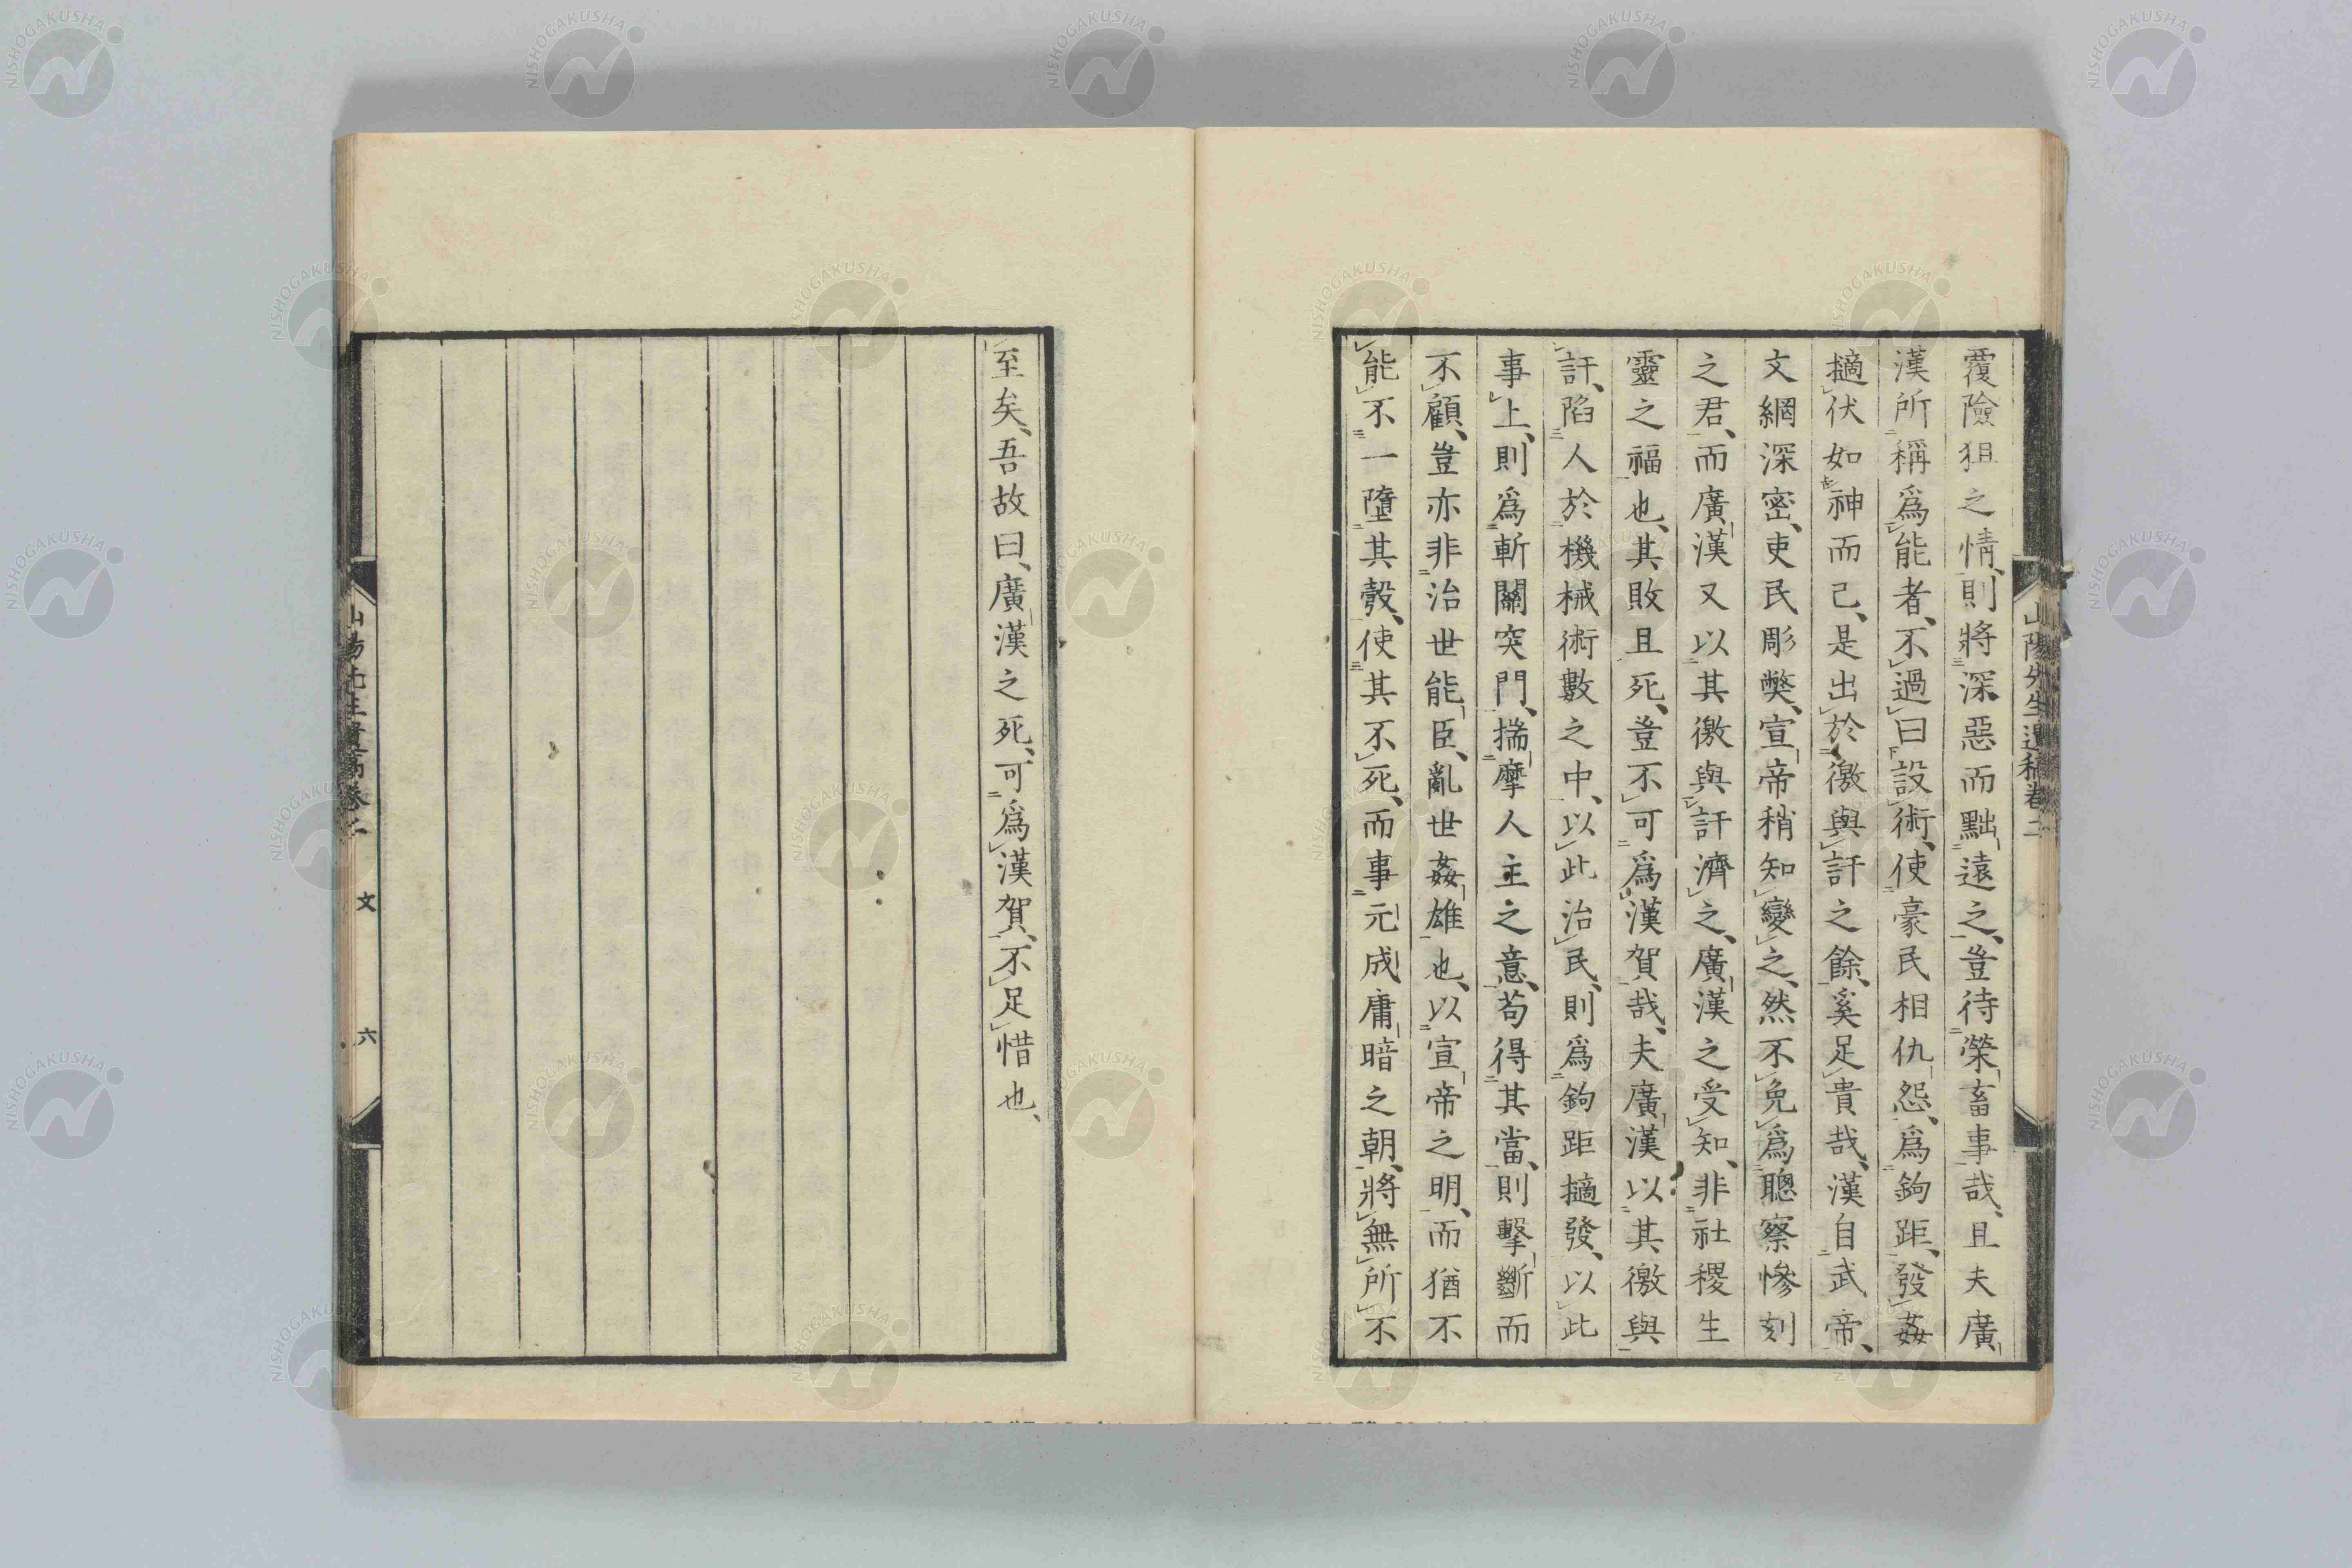 山陽先生遺稿卷二
覆險狙之情、則將深惡而黜遠之、豈待滎畜事哉、且夫廣
漢所稱爲能者、不過曰設術、使豪民相仇怨、爲鉤距、發姦
擿伏如神而已、是出於徼與訐之餘、奚足貴哉、漢自武帝、
文網深密、吏民彫弊、宣帝稍知變之、然不免爲聰察慘刻
之君、而廣漢又以其徼與訐濟之、廣漢之受知、非社稷生
靈之福也、其敗且死、豈不可爲漢賀哉、夫廣漢以其徼與
訐、陷人於機械術數之中、以此治民、則爲鉤距擿發、以此
事上、則爲斬關突門、揣摩人主之意、苟得其當、則擊斷而
不顧、豈亦非治世能臣、亂世姦雄也、以宣帝之明、而猶不
能不一墮其彀、使其不死、而事元成庸暗之朝、將無所不
至矣、吾故曰、廣漢之死、可爲漢賀、不足惜也、
山陽先生遺稿卷二 文 六
NISHOGAKUSHA